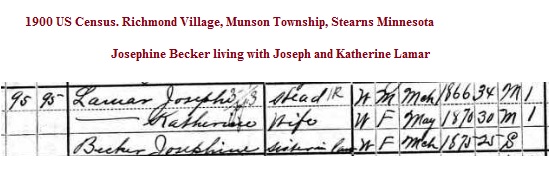 1900 US Census. Richmond Village, Munson Township, Stearns Minnesota
Josephine Becker living with Joseph and Katherine Lamar
95 95 Lamar Joseph Head W M Mch 1866 34 M 1
Katherine Wife W F May 1870 30 M 1
Becker Josephine Sister in law W F Mch 1875 25 S